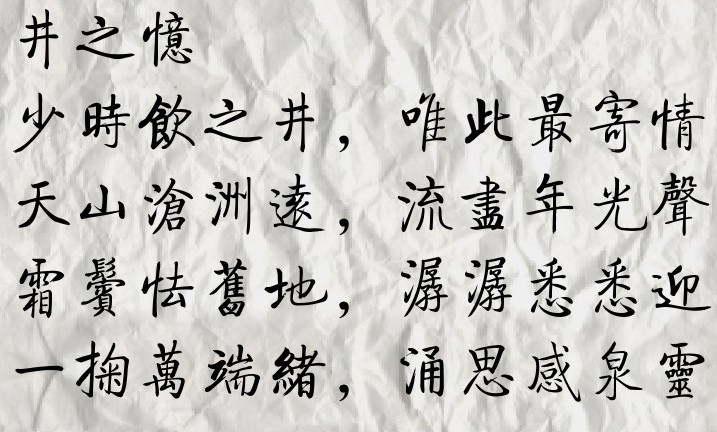 井之憶
少時飲之井，唯此最寄情
天山滄洲遠，流盡年光聲
霜鬢怯舊地，潺潺悉悉迎
一掬萬端緒，涌思感泉靈